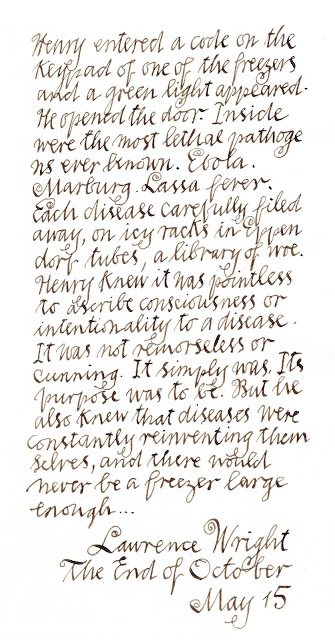 Henry entered a code on the
keypad of one of the freezers
and a green light appeared.
He opened the door. Inside
were the most lethal pathoge
ns ever known. Ebola.
Marburg. Lassa fever.
Each disease carefully filed
away, on icy racks in Eppen
dorf tubes, a library of woe.
Henry knew it was pointless
to ascribe consciousness or
intentionality to a disease.
It was not remorseless or
cunning. It simply was. Its
purpose was to be. But he
also knew that diseases were
constantly reinventing them
selves, and there would
never be a freezer large
enough...
Lawrence Wright
The End of October
May 15